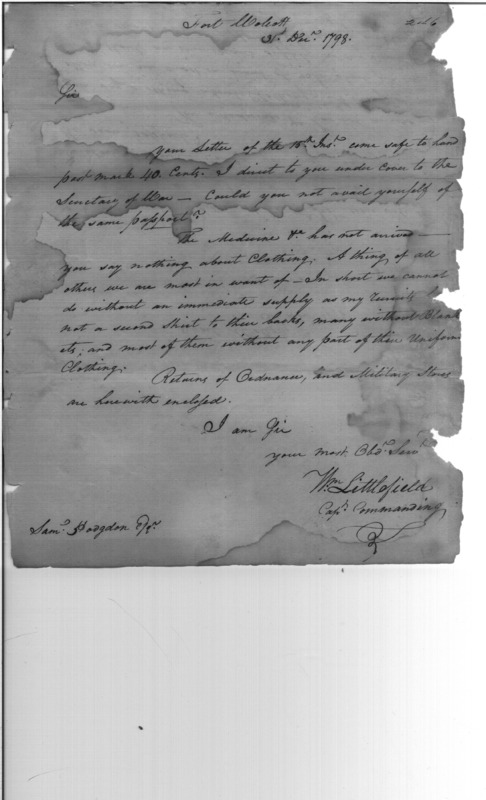 Fort Wolcott
31st. Decr. 1798.
Sir
your Letter of the 18th. Inst. come safe to han
post mark 40 Cents. I direct to you under Cover to the
Secretary of War — Could you not avail yourself of
the same passport?
The Medicine &c has not arrived —
you say nothing about Clothing; A thing of all
others we are most in want of — In short we cannot
do without an immediate supply as my recruits
not a second Shirt to their backs, many without Blank
ets, and most of them without any part of their Uniform
Clothing.
Returns of Ordnance, and Military Stores
are herewith enclosed.
I am Sir
your most Obdt. Servt.
Wm Littlefield
Capt. Commanding
Saml. Hodgdon Esqr.